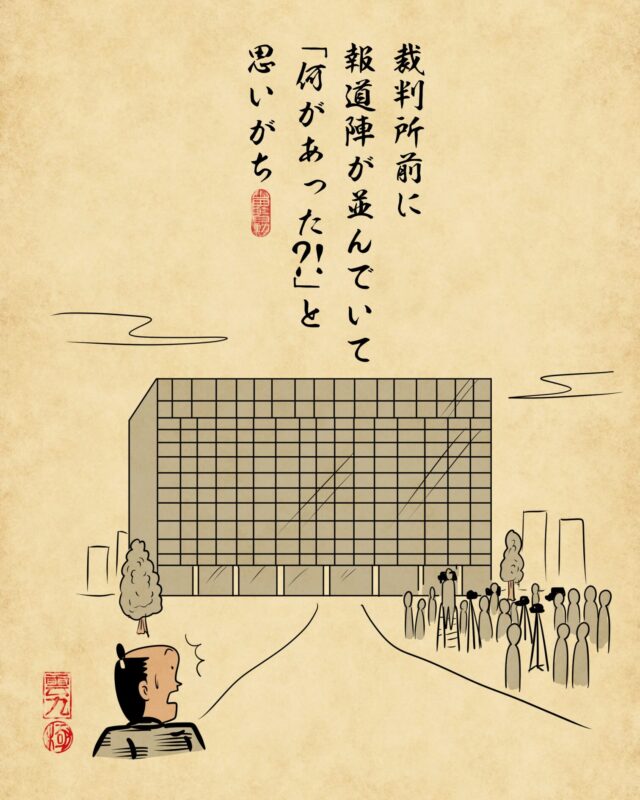 裁判所前に
報道陣が並んでいて
「何があった?!」と
思いがち